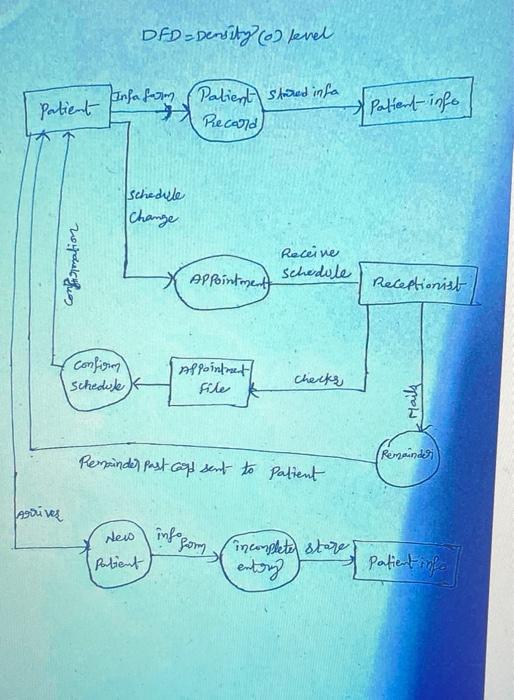 DFD = Density (0) level
Info form
Patient
Patient
Record
Stored info
Patient info
Schedule
Change
Confirmation
Appointment
Receive
Schedule
Receptionist
Confirm
Schedule
Appointment
File
checks
Mails
Remainder
Remainder Past card sent to Patient
Arrives
New
Patient
info
form
incomplete
entry
store
Patient info